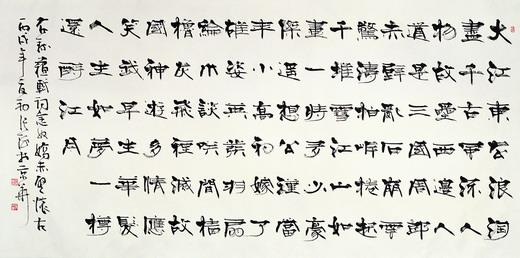 大江東去浪淘
盡千古風流人
物故壘西邊人
道是三國周郎
赤壁亂石崩雲
驚濤拍岸捲起
千堆雪江山如
畫一時多少豪
傑遙想公瑾當
年小喬初嫁了
雄姿英發羽扇
綸巾談笑間檣
櫓灰飛煙滅故
國神遊多情應
笑我早生華髮
人生如夢一樽
還酹江月
右錄蘇軾詞念奴嬌赤壁懷古
丙戌年夏初於京華